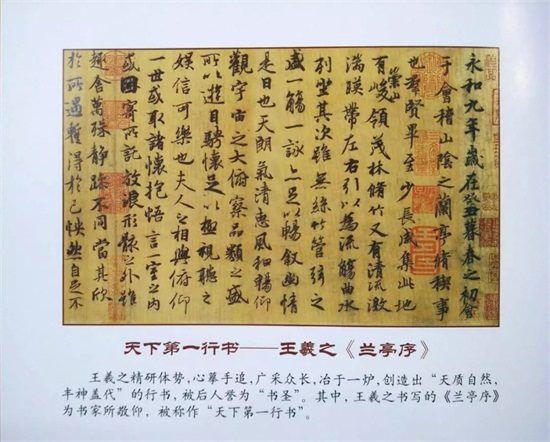 永和九年歲在癸丑暮春之初會
于會稽山陰之蘭亭脩稧事
也羣賢畢至少長咸集此地
有崇山峻領茂林脩竹又有清流激
湍暎帶左右引以為流觴曲水
列坐其次雖無絲竹管弦之
盛一觴一詠亦足以暢叙幽情
是日也天朗氣清惠風和暢仰
觀宇宙之大俯察品類之盛
所以遊目騁懷足以極視聽之
娛信可樂也夫人之相與俯仰
一世或取諸懷抱悟言一室之內
或因寄所託放浪形骸之外雖
趣舍萬殊静躁不同當其欣
於所遇暫得於己怏然自足不
天下第一行书——王羲之《兰亭序》
王羲之精研体势，心摹手追，广采众长，冶于一炉，创造出“天质自然，
丰神盖代”的行书，被后人誉为“书圣”。其中，王羲之书写的《兰亭序》
为书家所敬仰，被称作“天下第一行书”。